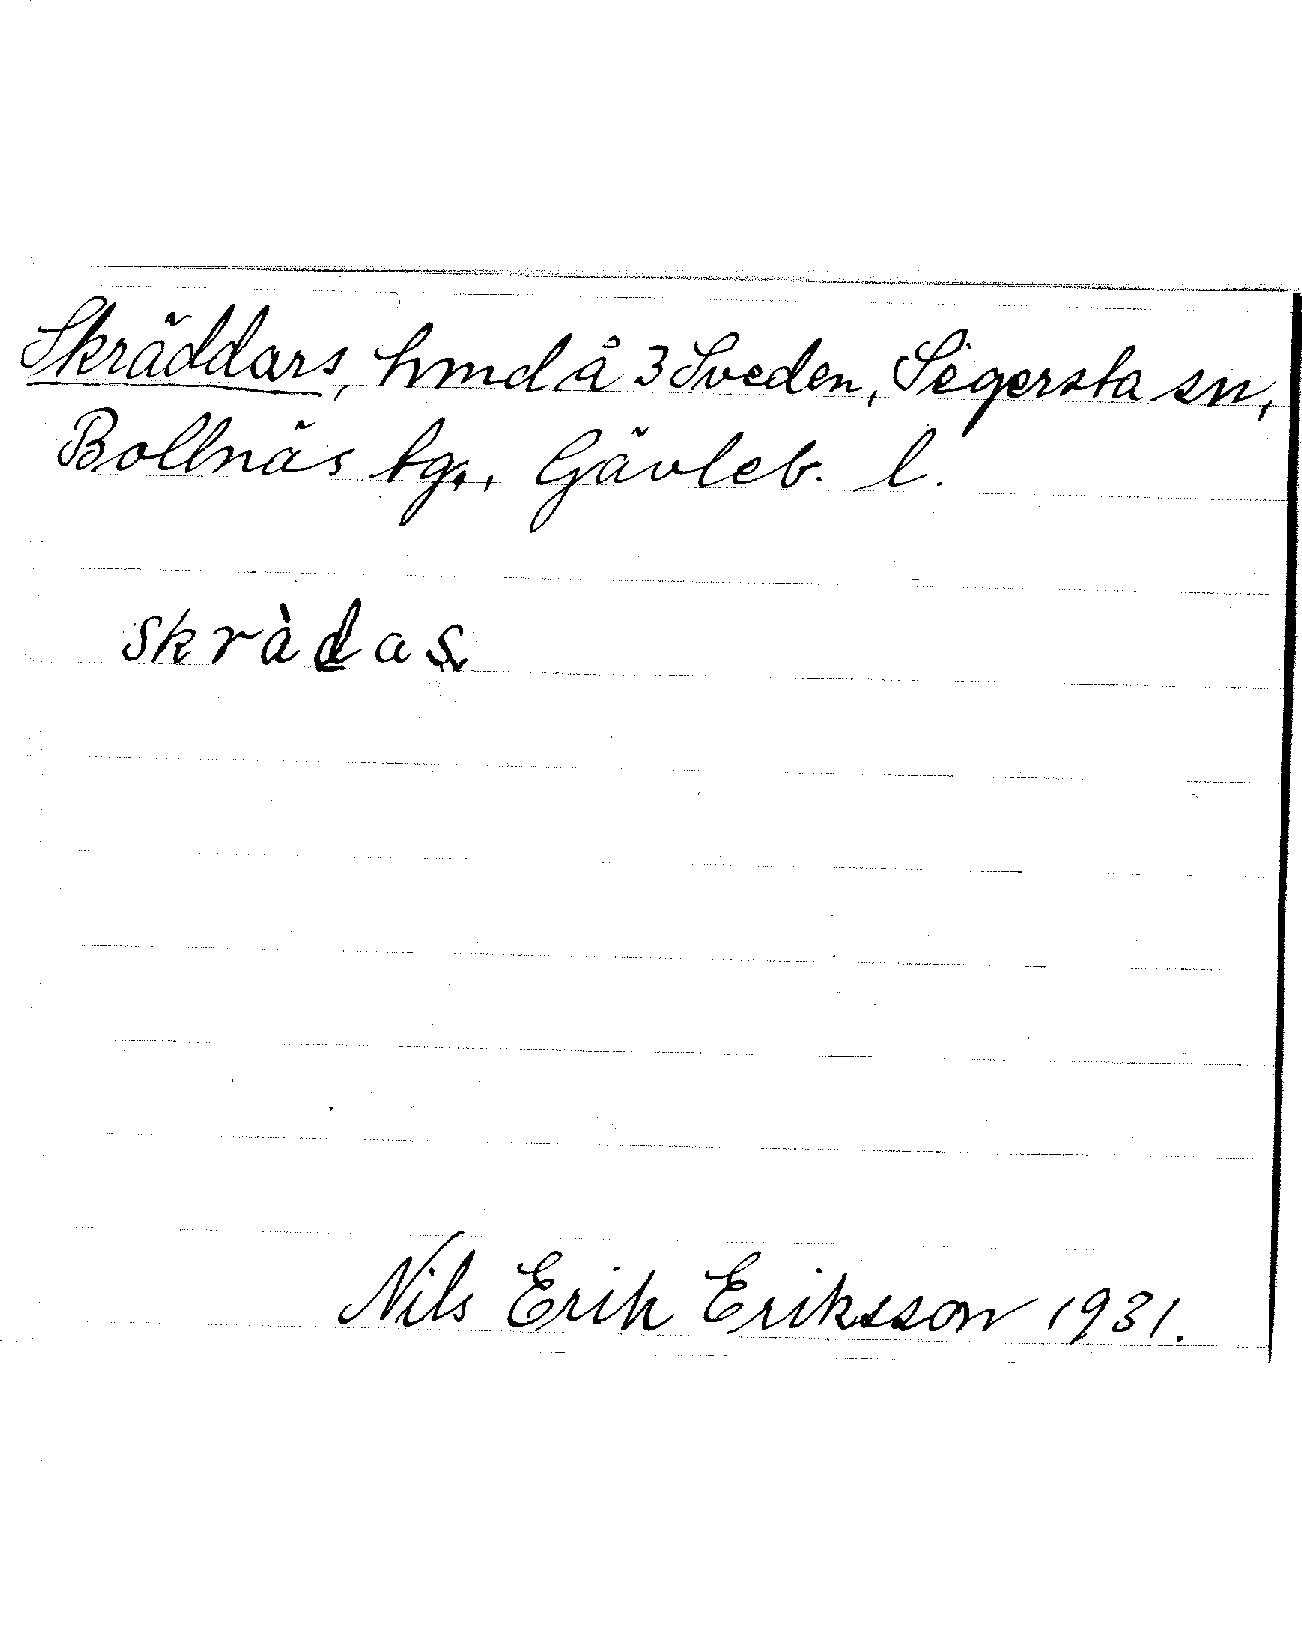 Skräddars, hmd å 3 Sveden, Segersta sn,
Bollnäs tg., Gävleb. l.
skràdas
Nils Erik Eriksson 1931.